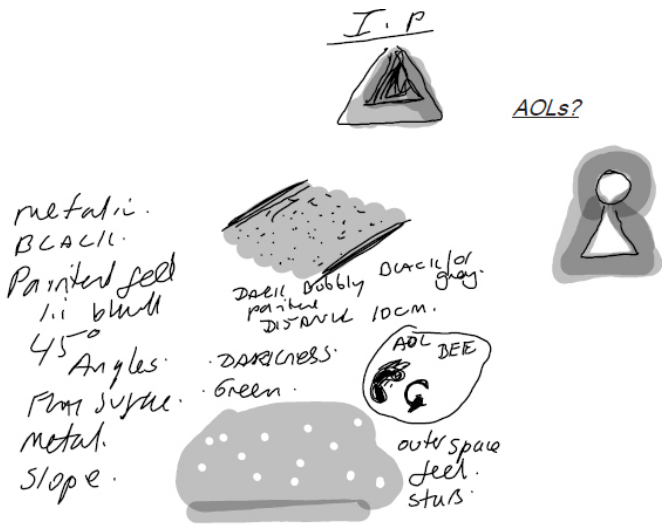 I.P
AOLs?
metalic.
BLACK.
Painted feel
in black
45°
Angles.
Flat surface.
metal.
slope.
DARK Bubbly BLACK/or
gray.
painted
DISTANCE 10cm.
DARKNESS.
Green.
AOL
BEE
outer space
feel.
stars.